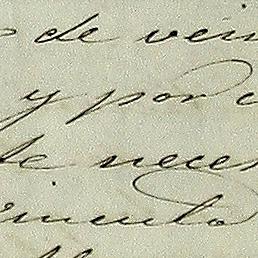 de vein
y por
te neces
rimento